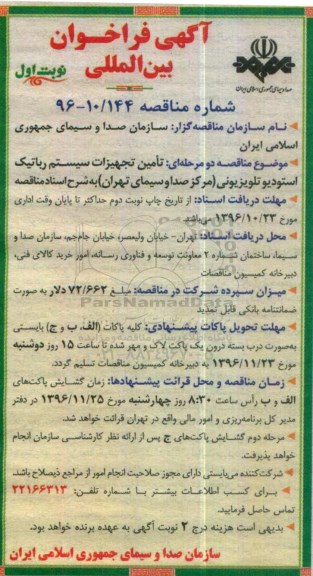 آگهی فراخوان
بین‌المللی
نوبت اول
صدا و سیمای جمهوری اسلامی ایران
شماره مناقصه ۱۰/۱۴۴-۹۶
نام سازمان مناقصه‌گزار: سازمان صدا و سیمای جمهوری
اسلامی ایران
موضوع مناقصه دو مرحله‌ای: تأمین تجهیزات سیستم رباتیک
استودیو تلویزیونی (مرکز صدا و سیمای تهران) به شرح اسناد مناقصه
مهلت دریافت اسناد: از تاریخ چاپ نوبت دوم حداکثر تا پایان وقت اداری
مورخ ۱۳۹۶/۱۰/۲۳ می‌باشد.
محل دریافت اسناد: تهران- خیابان ولیعصر، خیابان جام‌جم، سازمان صدا و
سیما، ساختمان شماره ۲ معاونت توسعه و فناوری رسانه، امور خرید کالای فنی،
دبیرخانه کمیسیون مناقصات
میزان سپرده شرکت در مناقصه: مبلغ ۷۲/۶۶۲ دلار به صورت
ضمانتنامه بانکی قابل تمدید
مهلت تحویل پاکات پیشنهادی: کلیه پاکات (الف، ب و ج) بایستی
به‌صورت درب بسته درون یک پاکت لاک و مهر شده تا ساعت ۱۵ روز دوشنبه
مورخ ۱۳۹۶/۱۱/۲۳ به دبیرخانه کمیسیون مناقصات تسلیم گردد.
زمان مناقصه و محل قرائت پیشنهادها: زمان گشایش پاکت‌های
الف و ب رأس ساعت ۸:۳۰ روز چهارشنبه مورخ ۱۳۹۶/۱۱/۲۵ در دفتر
مدیر کل برنامه‌ریزی و امور مالی واقع در تهران قرائت خواهد شد.
مرحله دوم گشایش پاکت‌های ج پس از ارائه نظر کارشناسی سازمان انجام
خواهد پذیرفت.
شرکت‌کننده می‌بایستی دارای مجوز صلاحیت انجام امور از مراجع ذیصلاح باشد.
برای کسب اطلاعات بیشتر با شماره تلفن: ۲۲۱۶۶۳۱۳
تماس حاصل فرمایید.
بدیهی است هزینه درج ۲ نوبت آگهی به عهده برنده خواهد بود.
سازمان صدا و سیمای جمهوری اسلامی ایران
ParsNamadData